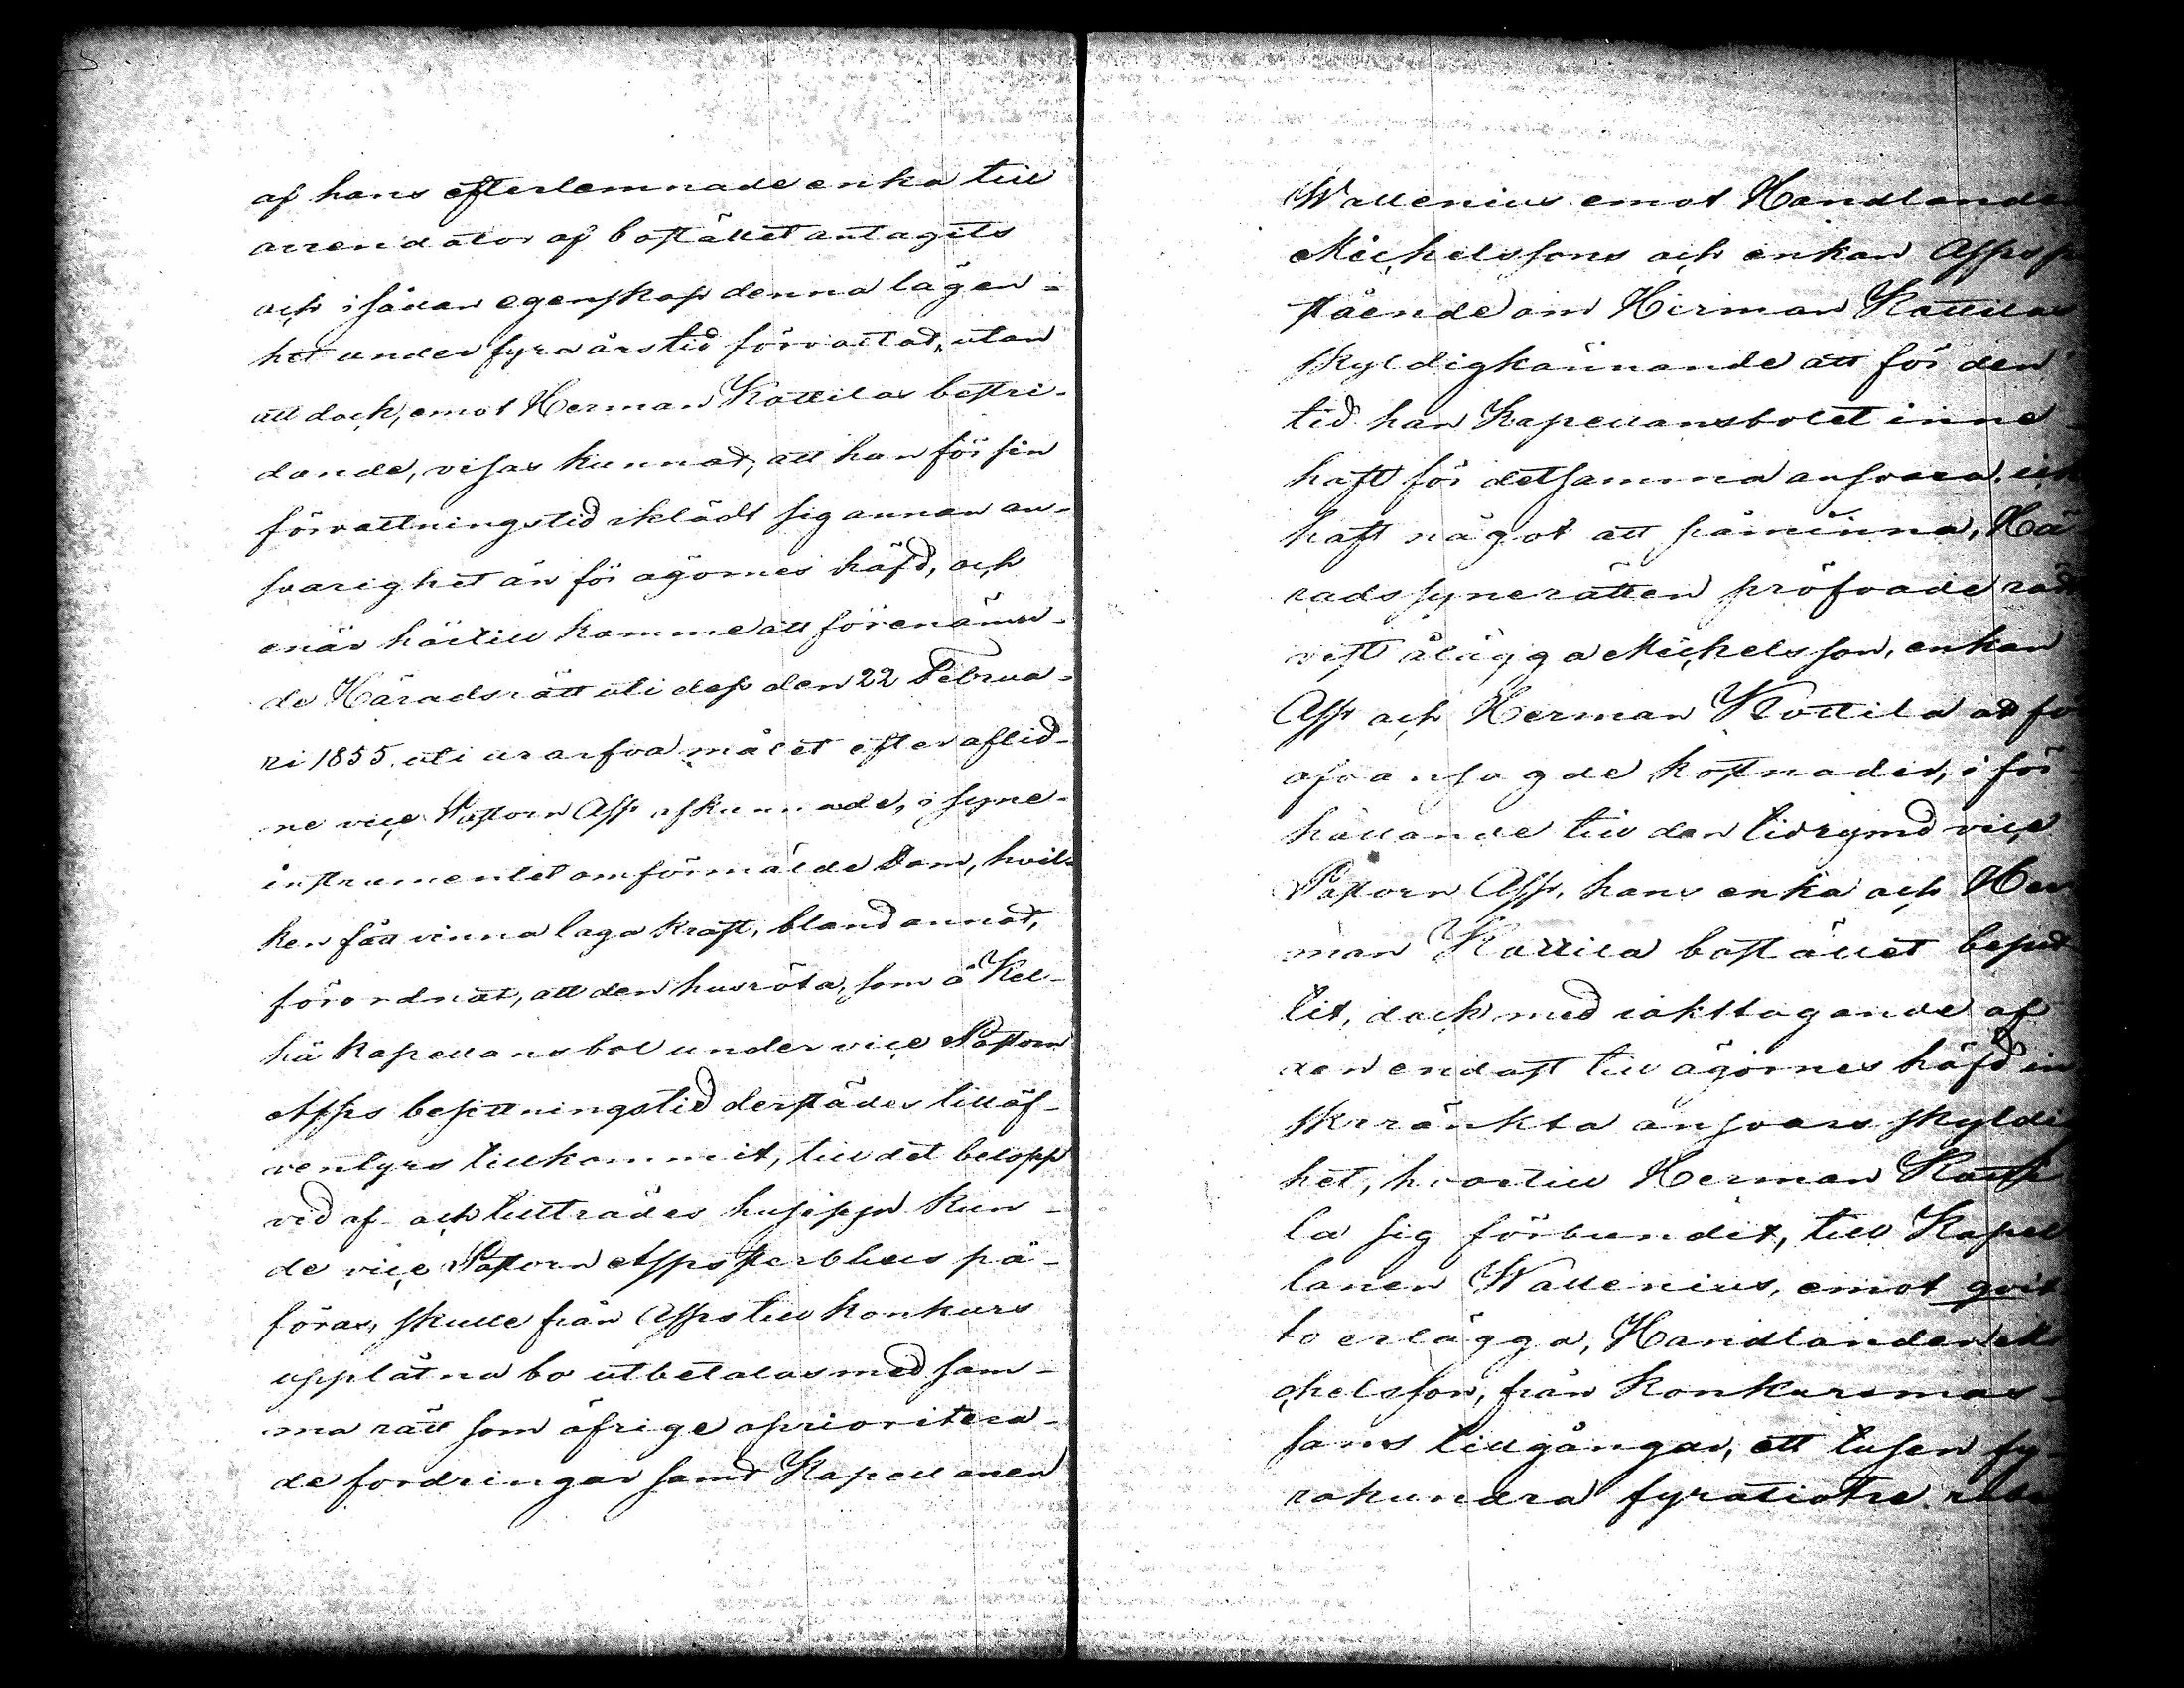 af hans efterlemnade enka till
arrendator af bostället antagits
och i sådan egenskap denna lägen-
het under fyra års tid förvaltad, utan
att dock, emot Herman Kattilas bestri-
dande, visas kunnat, att han för sin
förvaltningstid iklädt sig annan an-
svarighet än för ägornes häfd, och
enär härtill komme att förenämn-
de Häradsrätt uti dess den 22 Februa-
ri 1855 uti urarfva målet efter aflid-
ne vice Pastorn Asp afkunnade, i syne-
instrumentet omförmälde Dom, hvil-
ken fått vinna laga kraft, bland annat,
förordnat, att den husröta, som å Kel-
hä kapellansbol under vice Pastorn
Asps besittningstid derstädes tilläf-
ventyrs tillkommit, till det belopp
vid af- och tillträdes husesyn kun-
de vice Pastorn Asps sterbhus på-
föras, skulle från Asps till konkurs
upplåtna bo utbetalas med sam-
ma rätt som öfrige oprioritera-
de fordringar samt Kapellanen
Wallenius emot Handlanden
Michelssons och enkan Asps p
stående om Herman Kattilas
skyldigkännande att för den
tid han Kapellansbolet inne-
haft för detsamma ansvara, ick
haft något att påminna, Hä
radssynerätten pröfvade rätt
vist ålägga Michelsson, enkan
Asp och Herman Kattila at för
ofvansagde kostnader, i för
hållande till den tidrymd vice
Pastorn Asp, hans enka och Her
man Kattila bostället besut
tit, dock med iakttagande af
den endast till ägornes häfd in
skränkta ansvars skyldi
het, hvartill Herman Katti
la sig förbundit, till Kapel
lanen Wallenius, emot qvit
to erlägga, Handlanden Mi
chelsson, från Konkursmas-
sans tillgångar, ett tusen fy-
rahundra fyratiotre